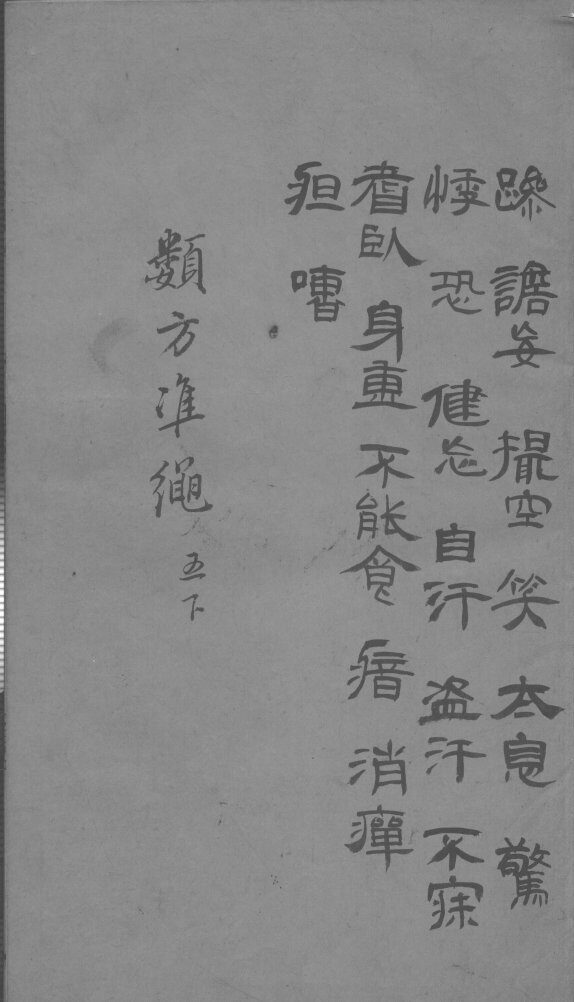 躁 譫妄 撮空 笑 太息 驚
悸 恐 健忘 自汗 盗汗 不寐
耆臥 身重 不能食 瘖 消癉
疸 嘈
類方准繩 五下